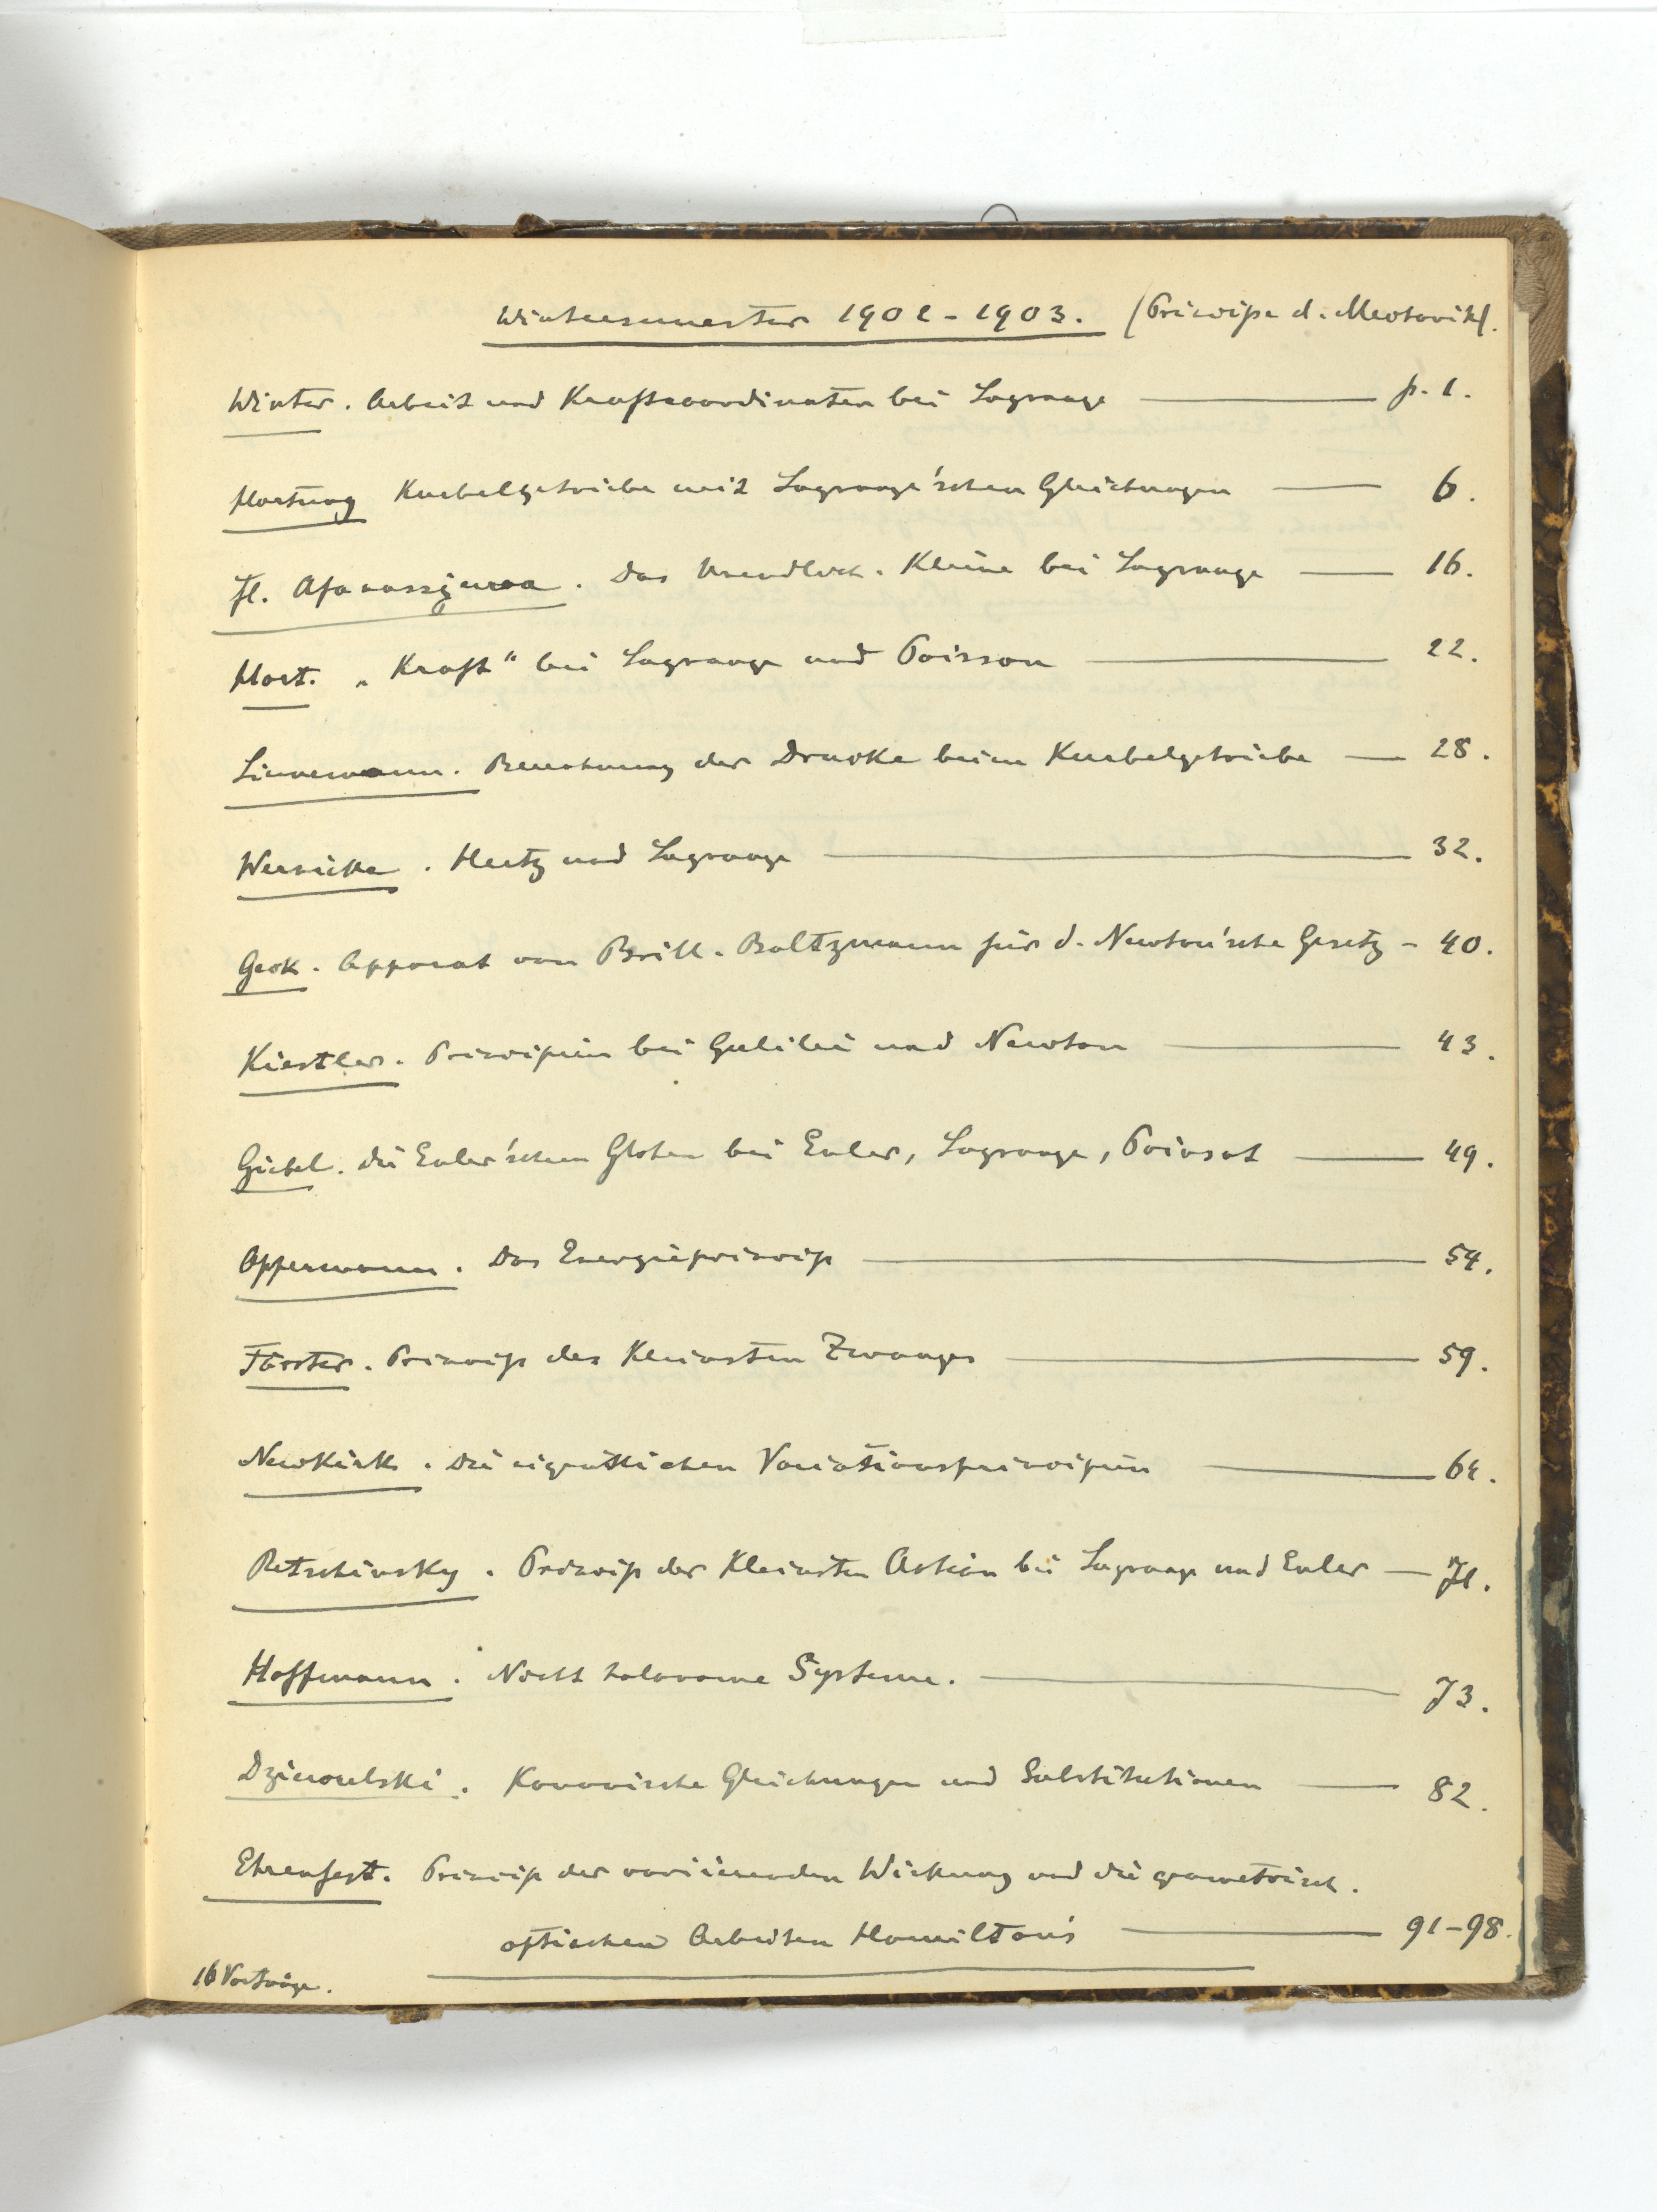 Wintersemester 1902-1903. (Principe d. Mechanik).
Winter. Arbeit und Kraftcoordinaten bei Lagrange — p. 1.
Hartung Kurbelgetriebe mit Lagrange'schen Gleichungen — 6.
Fl. Afanassjewa. Das Unendlich. Kleine bei Lagrange — 16.
Hort. „Kraft“ bei Lagrange und Poisson — 22.
Linnemann. Berechnung der Drucke beim Kurbelgetriebe — 28.
Wernicke. Hertz und Lagrange — 32.
Geok. Apparat von Brill-Boltzmann für d. Newton'sche Gesetz - 40.
Kiestler. Principien bei Galilei und Newton — 43.
Giebel. Die Euler'schen Glchen bei Euler, Lagrange, Poinsot — 49.
Oppermann. Das Energieprincip — 54.
Förster. Princip des Kleinsten Zwanges — 59.
Newkirk. Die eigentlichen Variationsprincipien — 64.
Retschinsky. Princip der Kleinsten Action bei Lagrange und Euler — 71.
Hoffmann. Nicht holonome Systeme. — 73.
Dziewulski. Kanonische Gleichungen und Substitutionen — 82.
Ehrenfest. Princip der variierenden Wirkung und die geometrisch.
optischen Arbeiten Hamilton's — 91-98.
16 Vorträge.